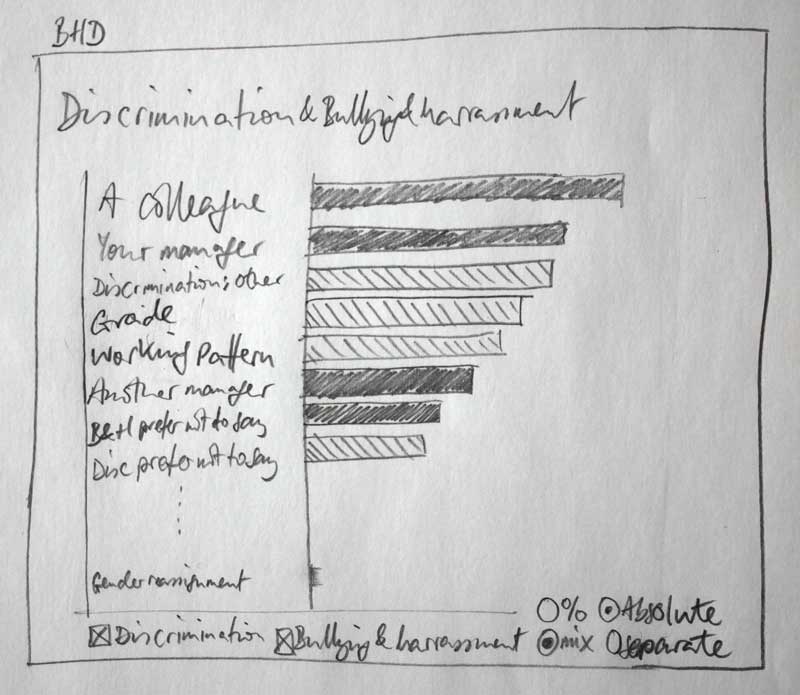 BHD
Discrimination & Bullying & harrassment
A colleague
Your manager
Discrimination: other
Grade
Working Pattern
Another manager
B&H prefer not to say
Disc prefer not to say
Gender reassignment
Discrimination Bullying & harrassment
% Absolute
mix separate